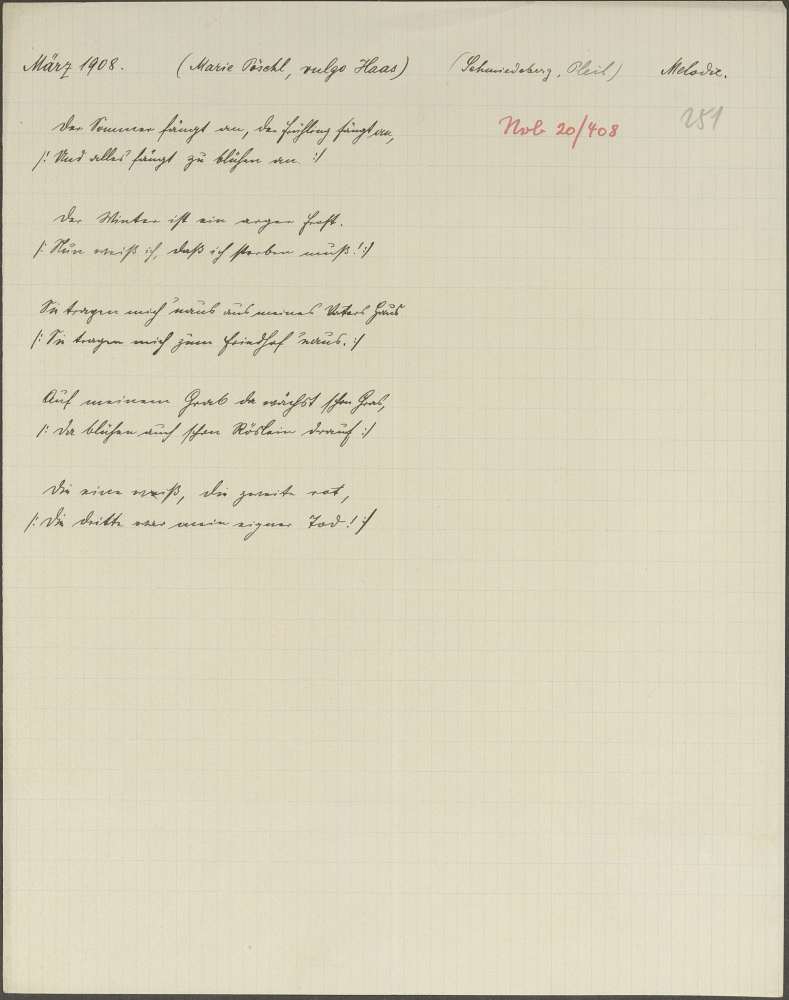 März 1908. (Marie Pöschl, vulgo Haas) (Schmiedeberg, Pleil) Melodie.
Nob 20/408 251
Der Sommer fängt an, der Frühling fängt an,
/: Und alles fängt zu blühen an. :/
Der Winter ist ein arger Frost.
/: Nun weiß ich, daß ich sterben muß! :/
Sie tragen mich 'naus aus meines Vaters Haus
/: Sie tragen mich zum Friedhof 'naus. :/
Auf meinem Grab da wächst schon Gras,
/: Da blühen auch schon Röslein drauf :/
Die eine weiß, die zweite rot,
/: Die dritte war mein eigner Tod! :/